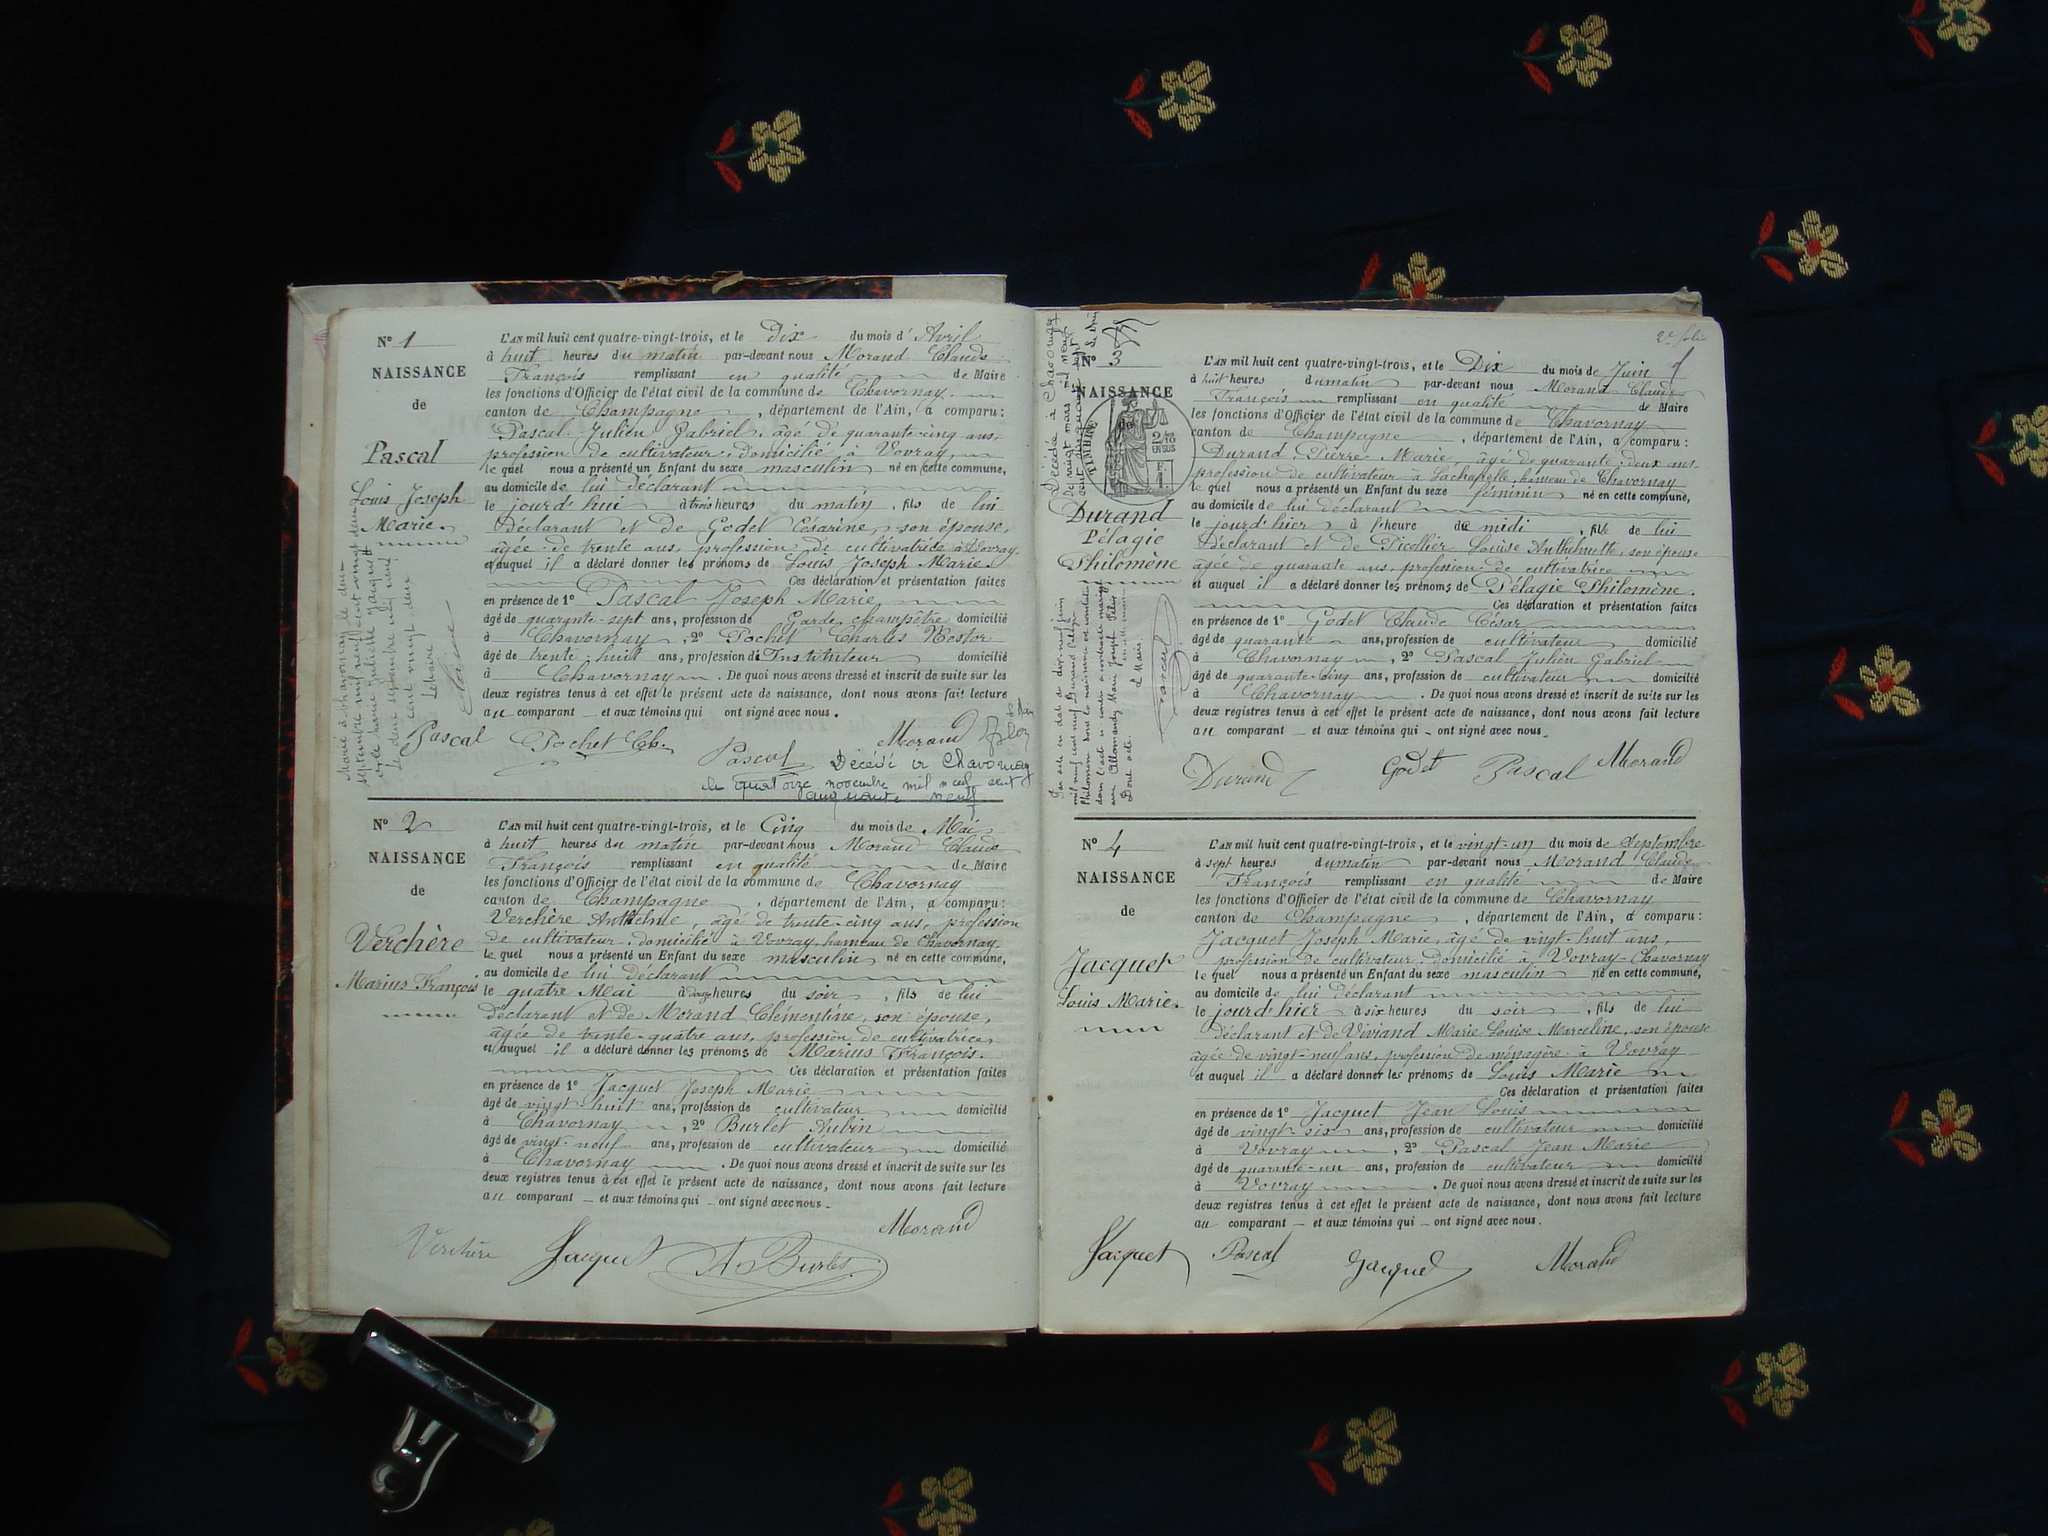 N° 1
NAISSANCE
de
Pascal
Louis Joseph
Marie.
L'AN mil huit cent quatre-vingt-trois, et le Dix du mois d'Avril
à huit heures du matin par-devant nous Morand Claude
François remplissant en qualité de Maire
les fonctions d'Officier de l'état civil de la commune de Chavornay
canton de Champagne, département de l'Ain, a comparu:
Pascal Julien Gabriel, âgé de quarante-cinq ans,
profession de cultivateur, domicilié à Vovray,
lequel nous a présenté un Enfant du sexe masculin né en cette commune,
au domicile de lui déclarant
le jourd'hui à trois heures du matin, fils de lui
déclarant et de Godet Césarine, son épouse,
âgée de trente ans, profession de cultivatrice à Vovray
et auquel il a déclaré donner les prénoms de Louis Joseph Marie.
Ces déclaration et présentation faites
en présence de 1° Pascal Joseph Marie
âgé de quarante-sept ans, profession de Garde champêtre domicilié
à Chavornay, 2° Pochet Charles Nestor
âgé de trente-huit ans, profession de Instituteur domicilié
à Chavornay. De quoi nous avons dressé et inscrit de suite sur les
deux registres tenus à cet effet le présent acte de naissance, dont nous avons fait lecture
au comparant et aux témoins qui ont signé avec nous.
Pascal Pochet Ch. Pascal Morand
Décédé à Chavornay
le quatorze novembre mil neuf cent
cinquante neuf
N° 2
NAISSANCE
de
Verchère
Marius François
L'AN mil huit cent quatre-vingt-trois, et le Cinq du mois de Mai
à huit heures du matin par-devant nous Morand Claude
François remplissant en qualité de Maire
les fonctions d'Officier de l'état civil de la commune de Chavornay
canton de Champagne, département de l'Ain, a comparu:
Verchère Anthelme, âgé de trente-cinq ans, profession
de cultivateur, domicilié à Vovray, hameau de Chavornay
lequel nous a présenté un Enfant du sexe masculin né en cette commune,
au domicile de lui déclarant
le quatre Mai à douze heures du soir, fils de lui
déclarant et de Morand Clémentine, son épouse,
âgée de trente-quatre ans, profession de cultivatrice
et auquel il a déclaré donner les prénoms de Marius François.
Ces déclaration et présentation faites
en présence de 1° Jacquet Joseph Marie
âgé de vingt-huit ans, profession de cultivateur domicilié
à Chavornay, 2° Burlet Aubin
âgé de vingt-neuf ans, profession de cultivateur domicilié
à Chavornay. De quoi nous avons dressé et inscrit de suite sur les
deux registres tenus à cet effet le présent acte de naissance, dont nous avons fait lecture
au comparant et aux témoins qui ont signé avec nous.
Morand
Verchère Jacquet
2e folio
N° 3
NAISSANCE
de
TIMBRE
2/10 EN SUS
Durand
Pélagie
Philomène
L'AN mil huit cent quatre-vingt-trois, et le Dix du mois de Juin
à huit heures du matin par-devant nous Morand Claude
François remplissant en qualité de Maire
les fonctions d'Officier de l'état civil de la commune de Chavornay
canton de Champagne, département de l'Ain, a comparu:
Durand Pierre Marie, âgé de quarante-deux ans
profession de cultivateur à Lachapelle, hameau de Chavornay
lequel nous a présenté un Enfant du sexe féminin né en cette commune,
au domicile de lui déclarant
le jourd'hier à 1 heure de midi, fille de lui
déclarant et de Picollier Louise Anthelmette, son épouse
âgée de quarante ans, profession de cultivatrice
et auquel il a déclaré donner les prénoms de Pélagie Philomène.
Ces déclaration et présentation faites
en présence de 1° Godet Claude César
âgé de quarante ans, profession de cultivateur domicilié
à Chavornay, 2° Pascal Julien Gabriel
âgé de quarante-cinq ans, profession de cultivateur domicilié
à Chavornay. De quoi nous avons dressé et inscrit de suite sur les
deux registres tenus à cet effet le présent acte de naissance, dont nous avons fait lecture
au comparant et aux témoins qui ont signé avec nous.
Durand Godet Pascal Morand
N° 4
NAISSANCE
de
Jacquet
Louis Marie.
L'AN mil huit cent quatre-vingt-trois, et le vingt-un du mois de Septembre
à sept heures du matin par-devant nous Morand Claude
François remplissant en qualité de Maire
les fonctions d'Officier de l'état civil de la commune de Chavornay
canton de Champagne, département de l'Ain, a comparu:
Jacquet Joseph Marie, âgé de vingt-huit ans,
profession de cultivateur, domicilié à Vovray-Chavornay
lequel nous a présenté un Enfant du sexe masculin né en cette commune,
au domicile de lui déclarant
le jourd'hier à six heures du soir, fils de lui
déclarant et de Viviand Marie Louise Marceline, son épouse
âgée de vingt-neuf ans, profession de ménagère à Vovray
et auquel il a déclaré donner les prénoms de Louis Marie
Ces déclaration et présentation faites
en présence de 1° Jacquet Jean Louis
âgé de vingt-six ans, profession de cultivateur domicilié
à Vovray, 2° Pascal Jean Marie
âgé de quarante-un ans, profession de cultivateur domicilié
à Vovray. De quoi nous avons dressé et inscrit de suite sur les
deux registres tenus à cet effet le présent acte de naissance, dont nous avons fait lecture
au comparant et aux témoins qui ont signé avec nous.
Jacquet Pascal Jacquet Morand